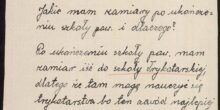 Jakie mam zamiary po ukończe-
niu szkoły pow. i dlaczego?
Po ukończeniu szkoły pow. mam
zamiar iść do szkoły Trykotarskiej,
dlatego że tam mogę nauczyć się
trykotarstwa bo ten zawód najlepiej